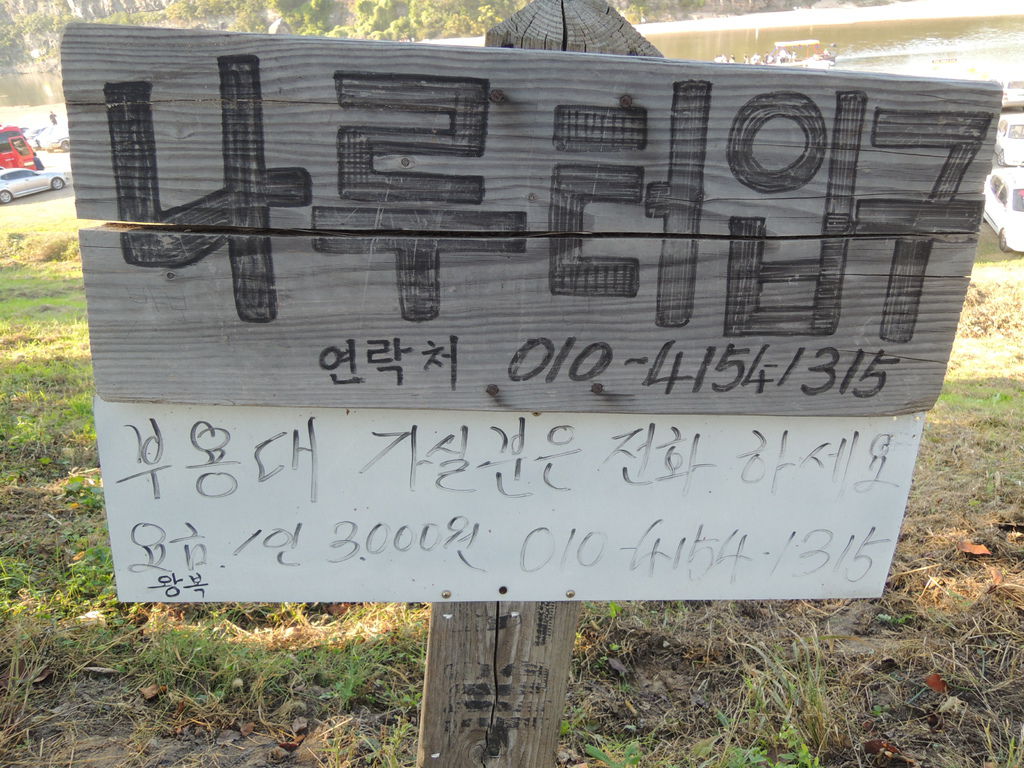 나루터입구
연락처 010-4154-1315
부용대 가실분은 전화 하세요
요금 1인 3.000원 010-4154-1315
왕복